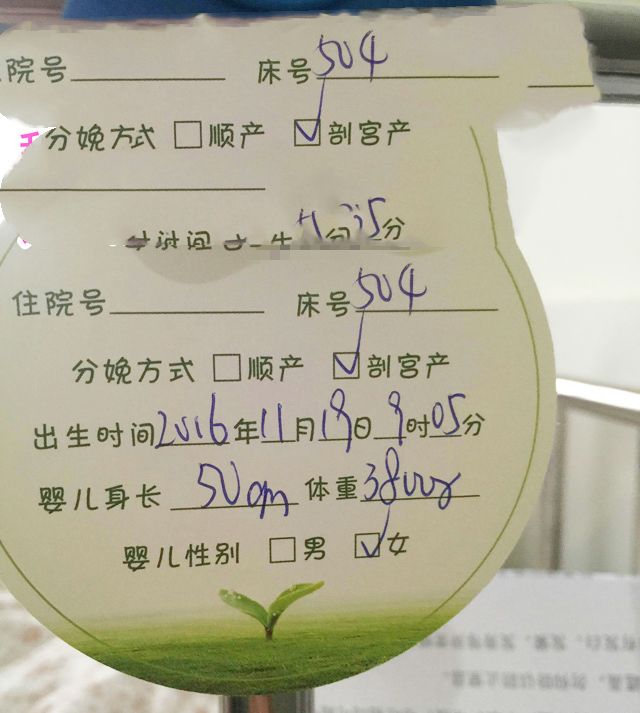 院号 床号504
分娩方式 □顺产 ☑剖宫产
分
住院号 床号504
分娩方式 □顺产 ☑剖宫产
出生时间2016年11月19日9时05分
婴儿身长 50cm 体重3800g
婴儿性别 □男 ☑女